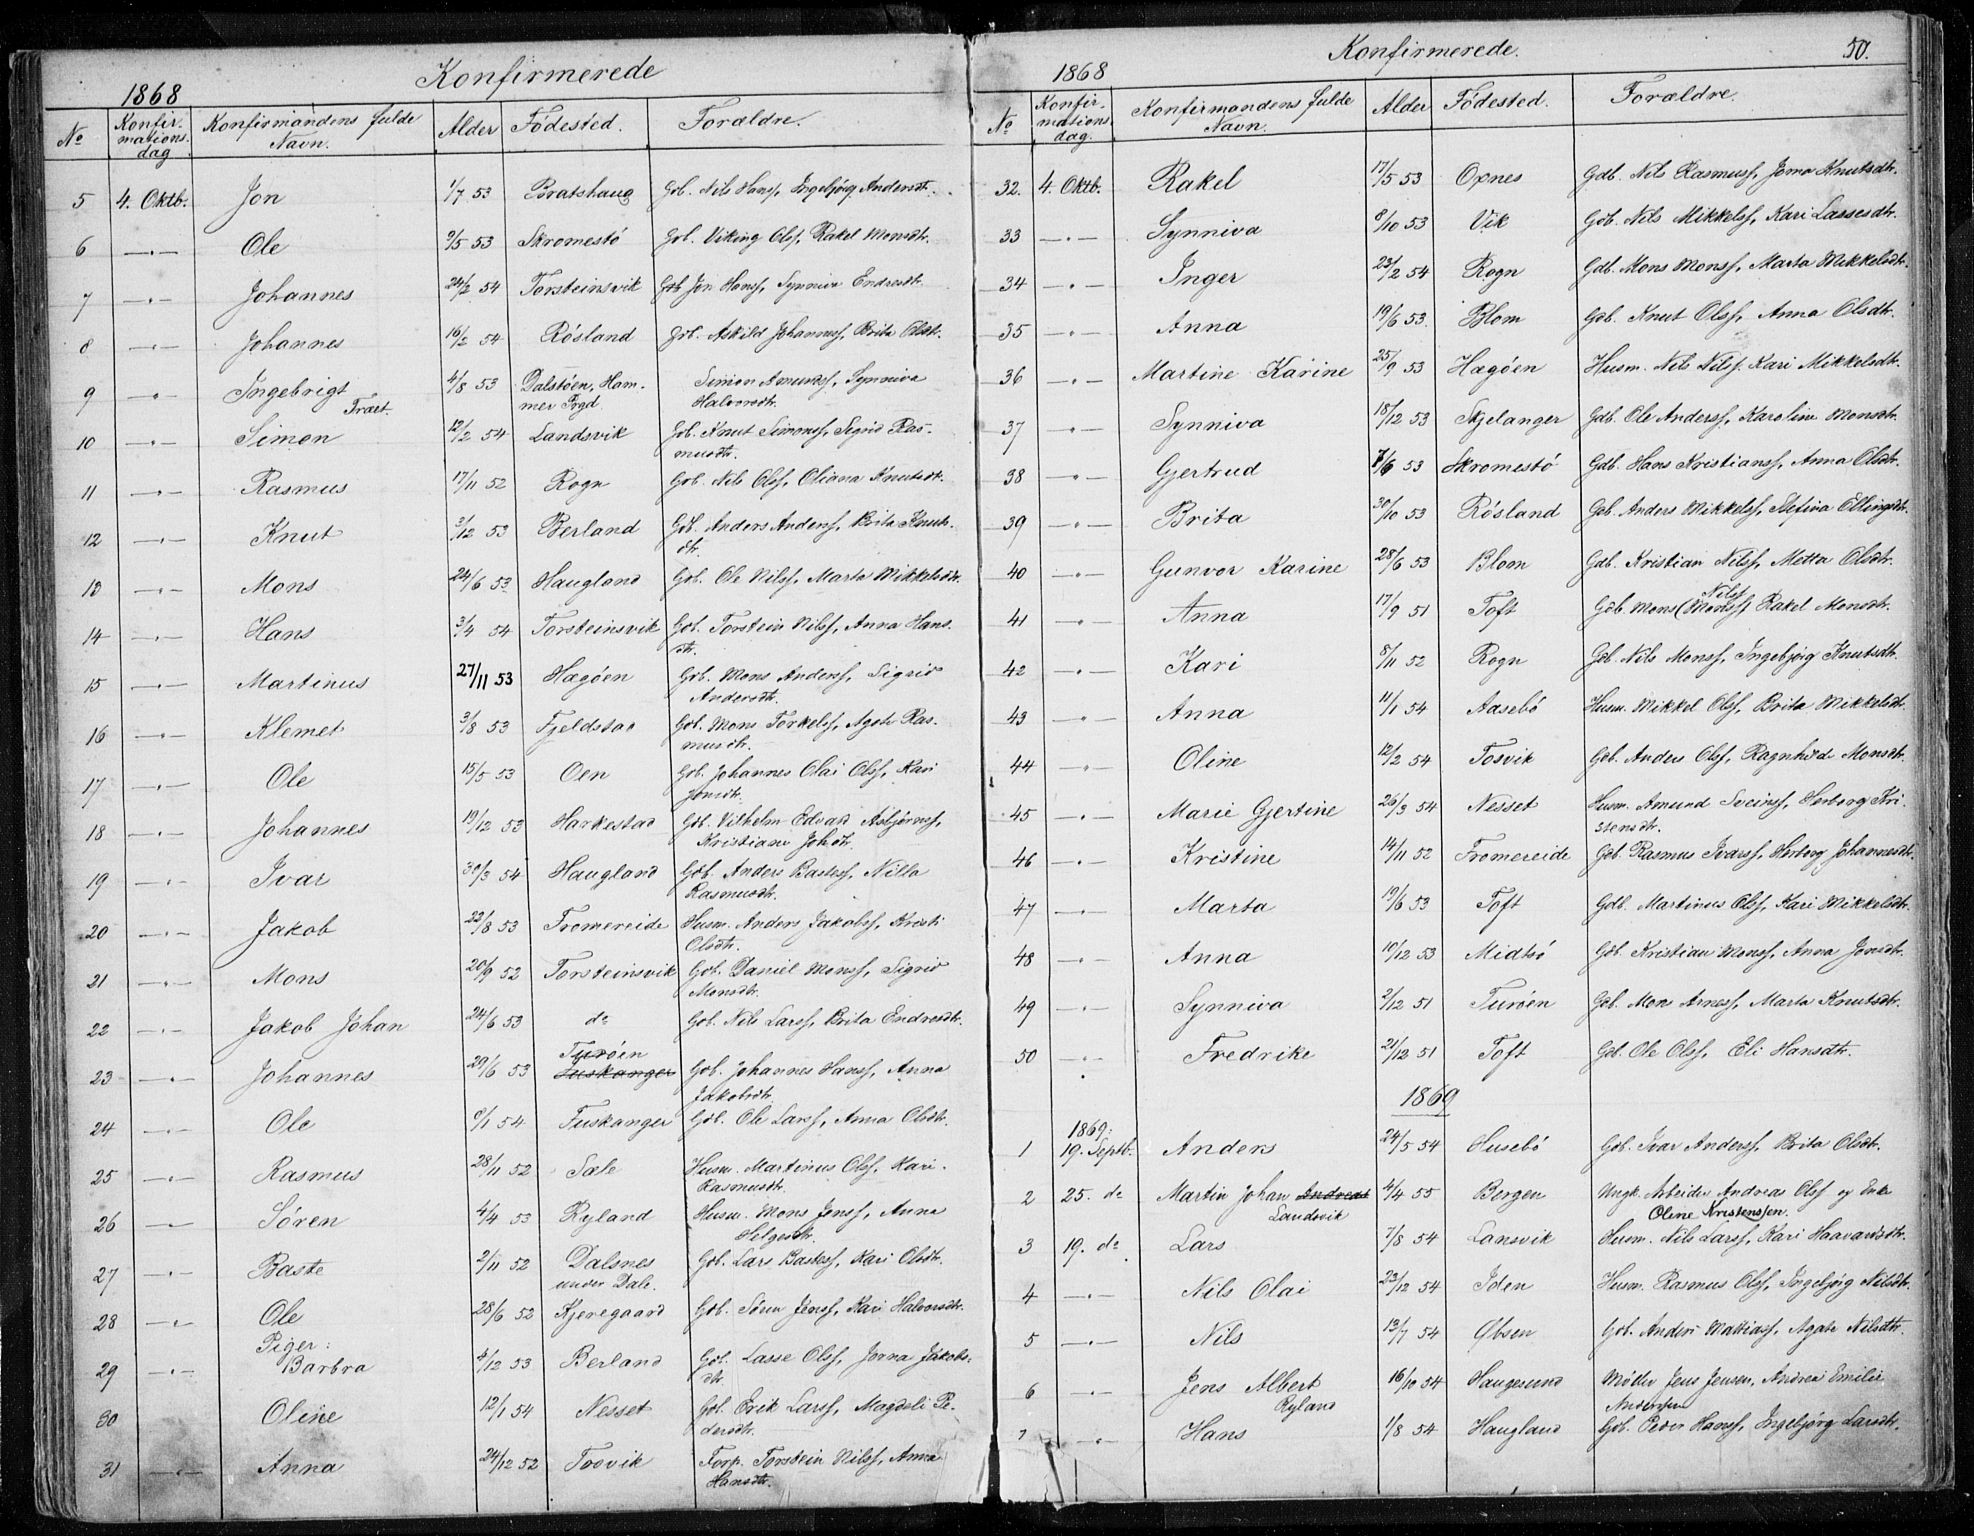 Konfirmerede
1868
No Konfirmations dag Konfirmandens fulde Navn. Alder Födested. Forældre.
5 4. Oktb. Jon 1/7 53 Bratshaug Gdb. Nils Hanss, Ingebjörg Andersdt.
6 —"— Ole 9/5 53 Skromestö Gdb. Viking Olss, Rakel Monsdtr.
7 —"— Johannes 24/2 54 Torsteinsvik Gdb Jon Hanss, Synniva Endresdtr.
8 —"— Johannes 16/2 54 Rösland Gdb. Askild Johanness, Brita Olsdt.
9 —"— Ingebrigt 4/8 53 Dalstöen, Ham- Simon Amundss, Synniva
mer Prgd. Halvorsdtr.
10 —"— Simon 12/2 54 Landsvik Gdb. Knut Simonss, Sigrid Ras-
musdtr.
11 —"— Rasmus 17/11 52 Rogn Gdb. Nils Olss, Oliana Knutsdt.
12 —"— Knut 3/12 53 Berland Gdb. Anders Anderss, Brita Knuts-
dtr.
13 —"— Mons 24/6 53 Haugland Gdb. Ole Nilss, Marta Mikkelsdtr.
14 —"— Hans 3/4 54 Torsteinsvik Gdb. Torstein Nilss, Anna Hans-
dtr.
15 —"— Martinus 27/11 53 Hagöen Gdb. Mons Anderss, Sigrid
Andersdtr.
16 —"— Klemet 3/8 53 Fjeldstad Gdb. Mons Torkelss, Agate Ras-
musdtr.
17 —"— Ole 15/5 53 Oen Gdb. Johannes Olai Olss, Kari
Jonsdtr.
18 —"— Johannes 19/12 53 Harkestad Gdb. Vilhelm Edvard Asbjörnss,
Kristiane Johsdtr.
19 —"— Ivar 30/3 54 Haugland Gdb. Anders Bastess, Nilla
Rasmusdtr.
20 —"— Jakob 22/8 53 Fromereide Husm. Anders Jakobss, Kristi
Olsdtr.
21 —"— Mons 20/9 52 Torsteinsvik Gdb. Daniel Monss, Sigrid
Monsdtr.
22 —"— Jakob Johan 24/6 53 do Gdb. Nils Larss, Brita Endresdtr.
23 —"— Johannes 29/6 53 Turöen Fuskanger Gdb. Johannes Hanss, Anna
Jakobsdtr.
24 —"— Ole 6/1 54 Fuskanger Gdb. Ole Larss, Anna Olsdtr.
25 —"— Rasmus 28/11 52 Sæle Husm. Martinus Olss, Kari
Rasmusdtr.
26 —"— Sören 4/4 53 Ryland Husm. Mons Jenss, Anna
Helgesdtr.
27 —"— Baste 2/11 52 Dalsnes Gdb. Lars Bastess, Kari Olsdtr.
under Dale.
28 —"— Ole 28/6 52 Kjeregaard Gdb. Sören Jenss, Kari Halvorsdtr.
Piger:
29 —"— Barbra 4/12 53 Berland Gdb. Lasse Olss, Jorna Jakobs-
dtr.
30 Oline 12/1 54 Nesset Gdb. Erik Larss, Magdeli Pe-
dersdtr.
31 —"— Anna 24/12 52 Tosvik Forp. Torstein Nilss, Anna
Hansdtr.
Konfirmerede. 50.
1868
No Konfirmations dag. Konfirmandens fulde Navn. Alder Födested. Forældre.
32. 4. Oktb. Rakel 17/5 53 Oxnes Gdb. Nils Rasmuss, Jorna Knutsdtr.
33 —"— Synniva 8/10 53 Vik Gdb. Nils Mikkelss, Kari Lassesdtr.
34 —"— Inger 23/2 54 Rogn Gdb. Mons Monss, Marta Mikkelsdtr.
35 —"— Anna 19/6 53. Blom Gdb. Knut Olss, Anna Olsdtr.
36 —"— Martine Karine 25/9 53 Hagöen Husm. Nils Nilss. Kari Mikkelsdtr.
37 —"— Synniva 18/12 53 Skjelanger Gdb. Ole Anderss, Karoline Monsdtr.
38 —"— Gjertrud 7/6 53 Skromestö Gdb. Hans Kristianss, Anna Olsdtr.
39 —"— Brita 30/10 53 Rösland Gdb. Anders Mikkelss, Stefina Ellingsdtr.
40 —"— Gunvor Karine 28/6 53 Blom Gdb. Kristian Nilss, Metta Olsdtr.
41 —"— Anna 17/9 51 Toft Gdb. Mons Nilss (Monss) Rakel Monsdtr.
42 —"— Kari 8/11 52 Rogn Gdb. Nils Monss, Ingebjörg Knutsdtr.
43 —"— Anna 11/1 54 Aasebö Husm. Mikkel Olss, Brita Mikkelsdt.
44 —"— Oline 12/2 54 Tosvik Gdb. Anders Olss, Ragnhild Monsdtr.
45 —"— Marie Gjertine 26/3 54 Nesset Husm. Amund Sveinss, Herborg Kri-
stensdtr.
46 —"— Kristine 14/11 52 Fromereide Gdb. Rasmus Ivarss, Herborg Johannesdtr.
47 —"— Marta 19/6 53 Toft Gdb. Martinus Olss, Kari Mikkelsdtr.
48 —"— Anna 10/12 53 Midtsö Gdb. Kristian Monss, Anna Jonsdtr.
49 —"— Synniva 2/12 51 Turöen Gdb. Mons Arness, Marta Knutsdtr.
50 —"— Fredrike 21/12 51 Toft Gdb. Ole Olss, Eli Hansdtr.
1869
1869:
1 19. Septb. Anders 24/5 54 Husebö Gdb. Ivar Anderss, Brita Olsdtr.
2 25. do Martin Johan Andreas 4/4 55 Bergen Ungk. Arbeider Andreas Olss og Enke
Landsvik Oline Kristenssen.
3 19. do Lars 7/8 54 Lansvik Husm. Nils Larss, Kari Haavardsdtr.
4 —"— Nils Olai 23/12 54 Iden Husm. Rasmus Olss, Ingebjörg Nilsdtr.
5 —"— Nils 13/7 54 Öbsen Gdb. Anders Mattiass, Agate Nilsdtr.
6 —"— Jens Albert 16/10 54 Haugesund Möller Jens Jensen, Andrea Emilie
Ryland Andersen
7 —"— Hans 1/8 54 Haugland Gdb. Peder Hanss, Ingebjörg Larsdtr.